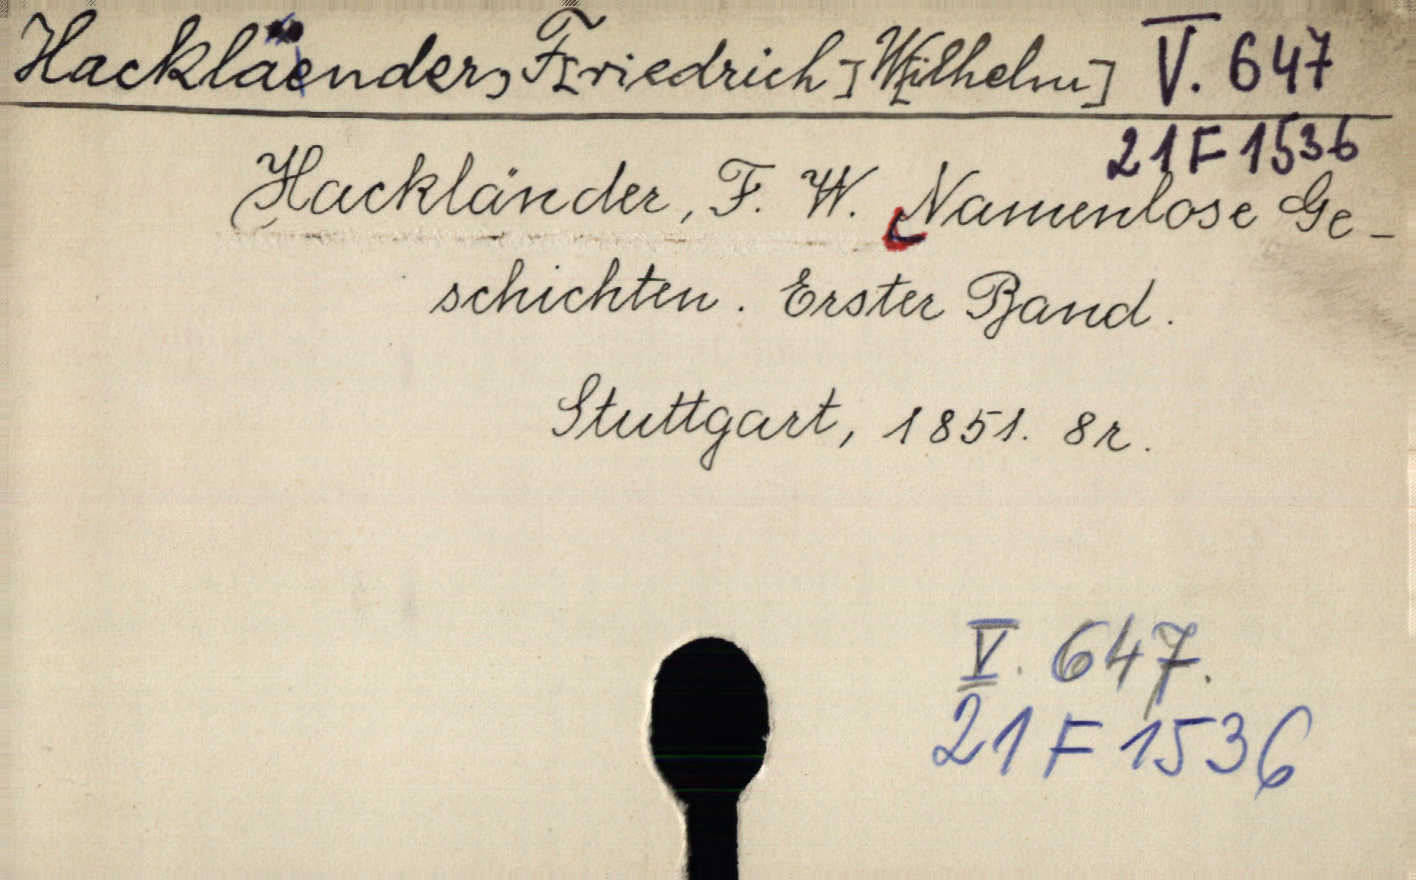 Hackläender, F[riedrich] W[ilhelm] V. 647
21 F 1536
Hackländer, F. W. Namenlose Ge-
schichten. Erster Band.
Stuttgart, 1851. 8r.
V. 647.
21 F 1536